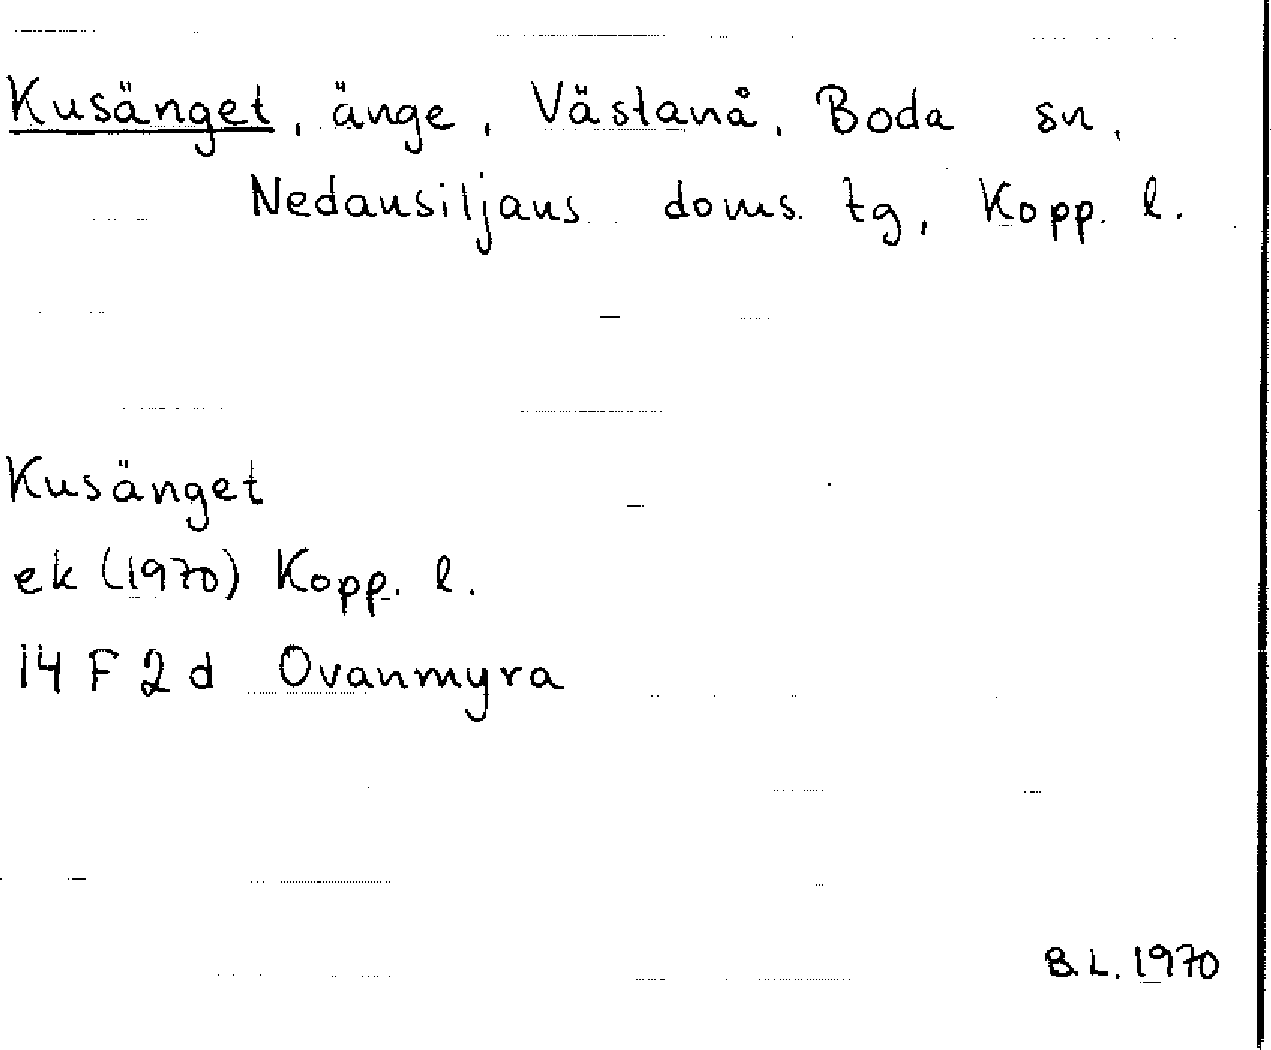 Kusänget, änge, Västanå, Boda sn,
Nedansiljans doms. tg, Kopp. l.
Kusänget
ek (1970) Kopp. l.
14 F 2 d Ovanmyra
B.L. 1970